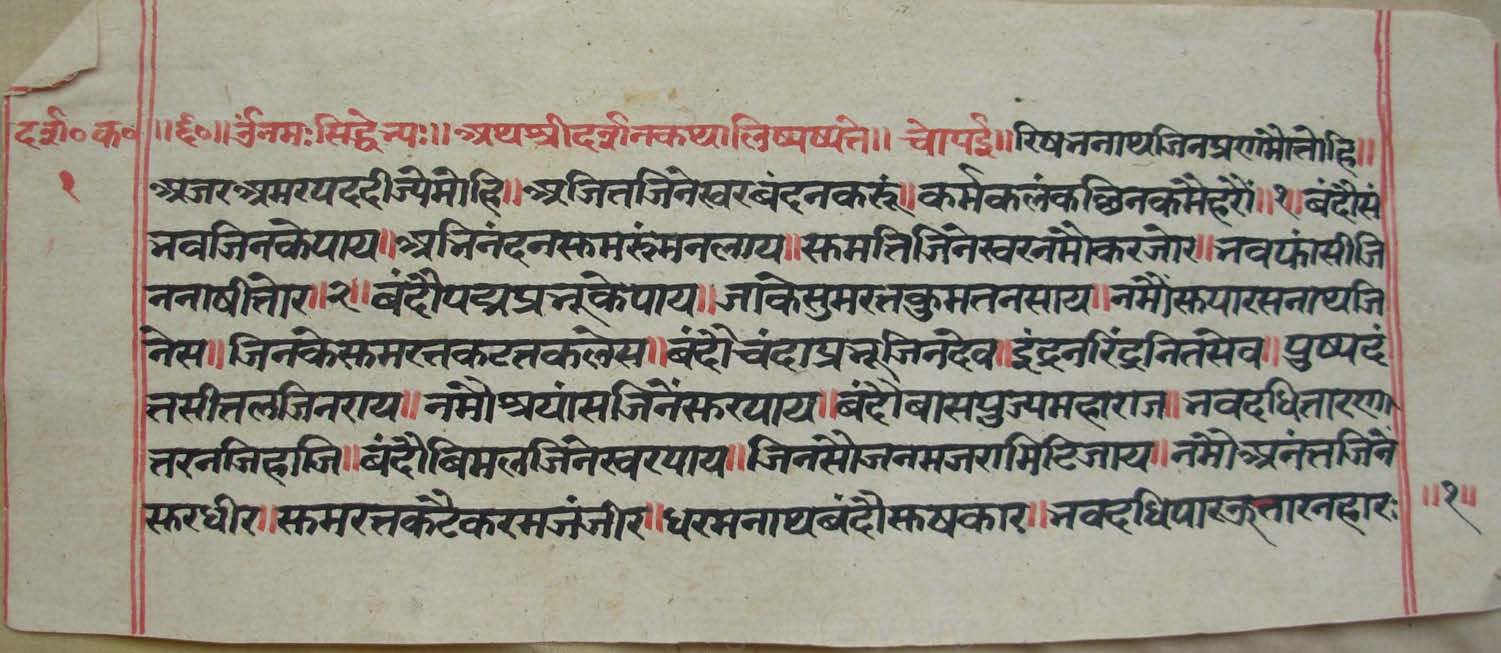 दर्श॰ क॰ ॥ ६॰ ॥ ॐ नमः सिद्धेभ्यः ॥ अथ श्री दर्शनकथा लिष्यष्यंते ॥ चोपई ॥ रिषभनाथ जिन प्रणमौ तोहि ॥
१ अजर अमर पद दीज्ये मोहि ॥ अजित जिनेस्वर बंदन करूं ॥ कर्म कलंक छिनकमै हरों ॥ १ ॥ बंदौ सं
भव जिनके पाय ॥ अभिनंदन समरुं मन लाय ॥ सुमति जिनेस्वर नमौ कर जोर ॥ भव फांसी जि
न नाषी तोर ॥ २ ॥ बंदौ पद्मप्रभू के पाय ॥ जाके सुमरत कुमत नसाय ॥ नमौं सुपारसनाथ जि
नेस ॥ जिनके सुमरत कटत कलेस ॥ बंदौ चंदाप्रभू जिनदेव ॥ इंद नरिंद्र नित सेव ॥ पुष्पदं
त सीतल जिनराय ॥ नमौ श्रयांस जिनेंसुर पाय ॥ बंदौ बासपुज्य महाराज ॥ भवदधि तारण
तरन जिहाजि ॥ बंदौ बिमल जिनेस्वर पाय ॥ जिनसौ जनम जरा मिटि जाय ॥ नमौ अनंत जिने
सुर धीर ॥ सुमरत कटै करम जंजीर ॥ धरमनाथ बंदौ सुषकार ॥ भवदधि पार उतारनहारः ॥ १ ॥